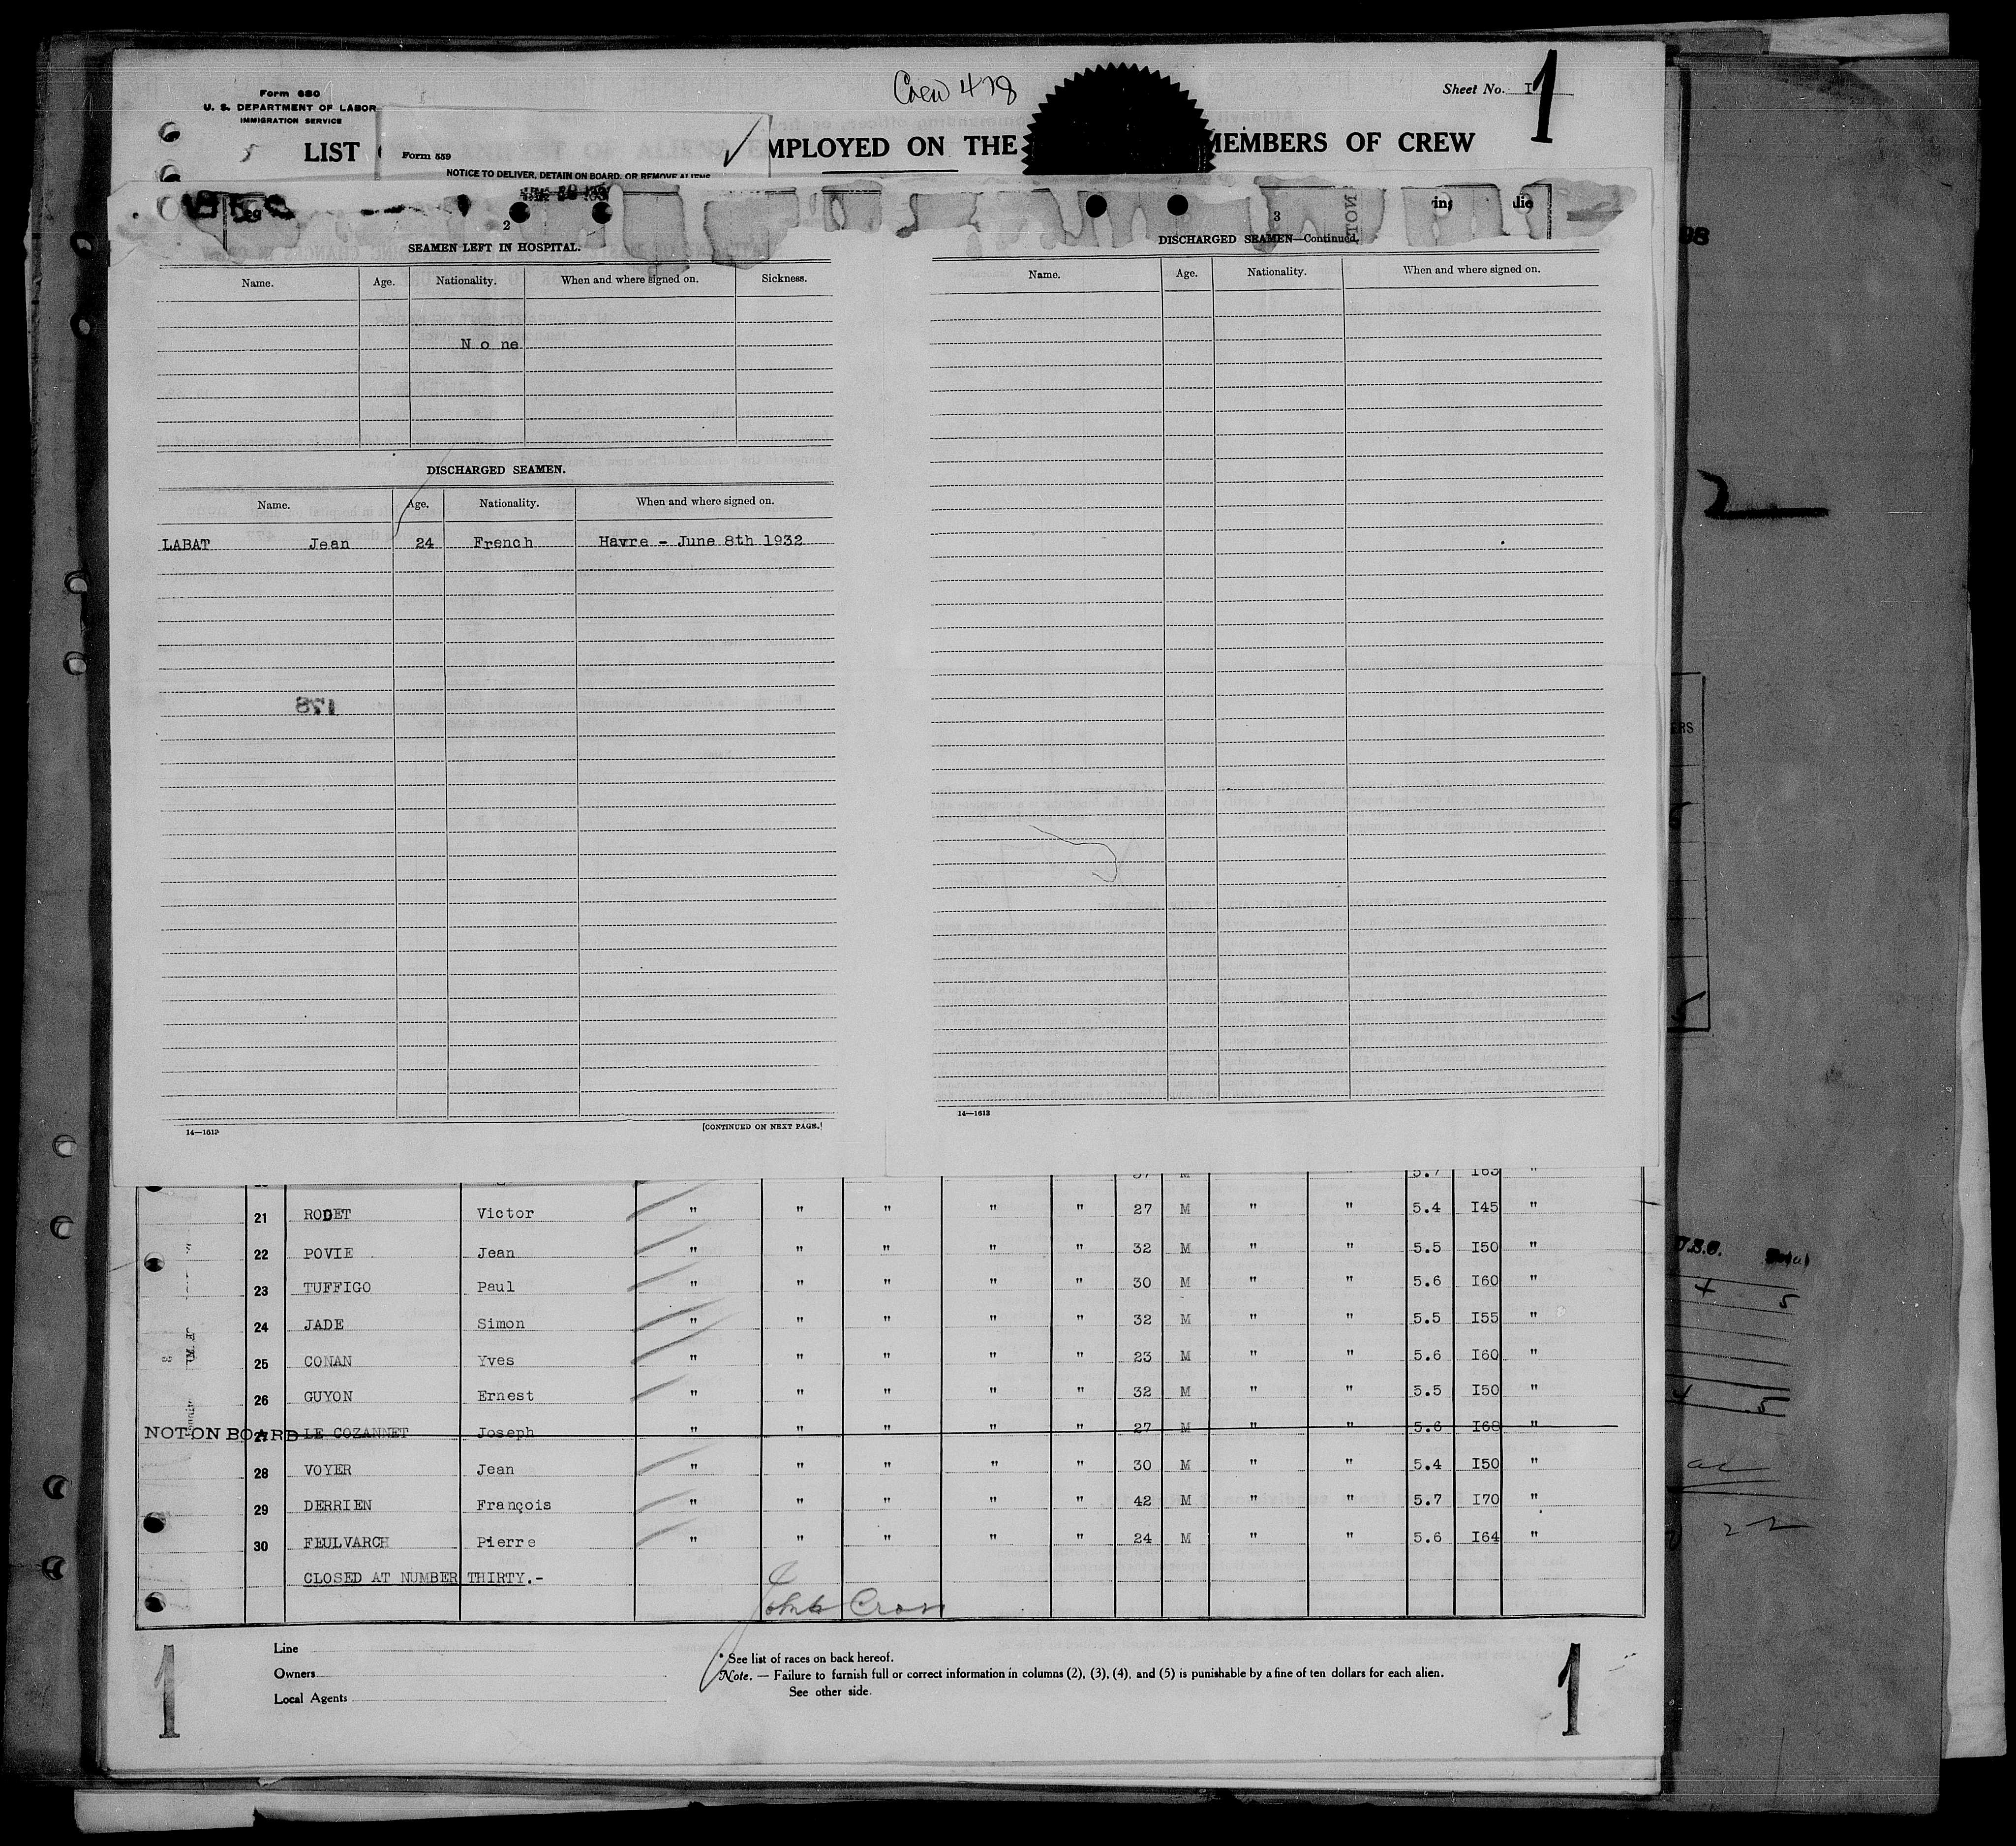 Crew 478
Form 680
U. S. DEPARTMENT OF LABOR
IMMIGRATION SERVICE
Sheet No. I
1
5
LIST
MPLOYED ON THE
MEMBERS OF CREW
Form 559
NOTICE TO DELIVER, DETAIN ON BOARD, OR REMOVE ALIENS
2
SEAMEN LEFT IN HOSPITAL.
Name. Age. Nationality. When and where signed on. Sickness.
N o ne
DISCHARGED SEAMEN.
Name. Age. Nationality. When and where signed on.
LABAT Jean 24 French Havre - June 8th 1932
178
14—1613
[CONTINUED ON NEXT PAGE.]
3
NOT
DISCHARGED SEAMEN—Continued.
Name. Age. Nationality. When and where signed on.
14—1613
5.7 I63 "
21 RODET Victor " " " " " 27 M " " 5.4 I45 "
22 POVIE Jean " " " " " 32 M " " 5.5 I50 "
23 TUFFIGO Paul " " " " " 30 M " " 5.6 I60 "
24 JADE Simon " " " " " 32 M " " 5.5 I55 "
25 CONAN Yves " " " " " 23 M " " 5.6 I60 "
26 GUYON Ernest " " " " " 32 M " " 5.5 I50 "
NOT ON BOARD 27 LE COZANNET Joseph " " " " " 27 M " " 5.6 I68 "
28 VOYER Jean " " " " " 30 M " " 5.4 I50 "
29 DERRIEN François " " " " " 42 M " " 5.7 I70 "
30 FEULVARCH Pierre " " " " " 24 M " " 5.6 I64 "
CLOSED AT NUMBER THIRTY.-
Line
Owners
Local Agents
* See list of races on back hereof.
Note. — Failure to furnish full or correct information in columns (2), (3), (4), and (5) is punishable by a fine of ten dollars for each alien.
See other side.
1
1
98
2
ERS
U.S.C.
4 5